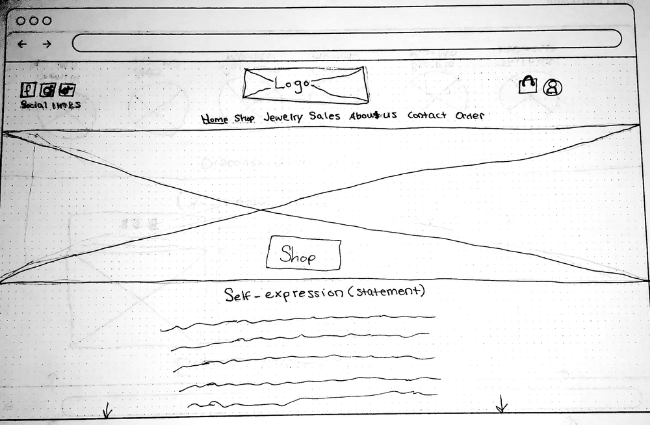 Logo
Social links
Home Shop Jewelry Sales About us Contact Order
Shop
Self-expression (statement)